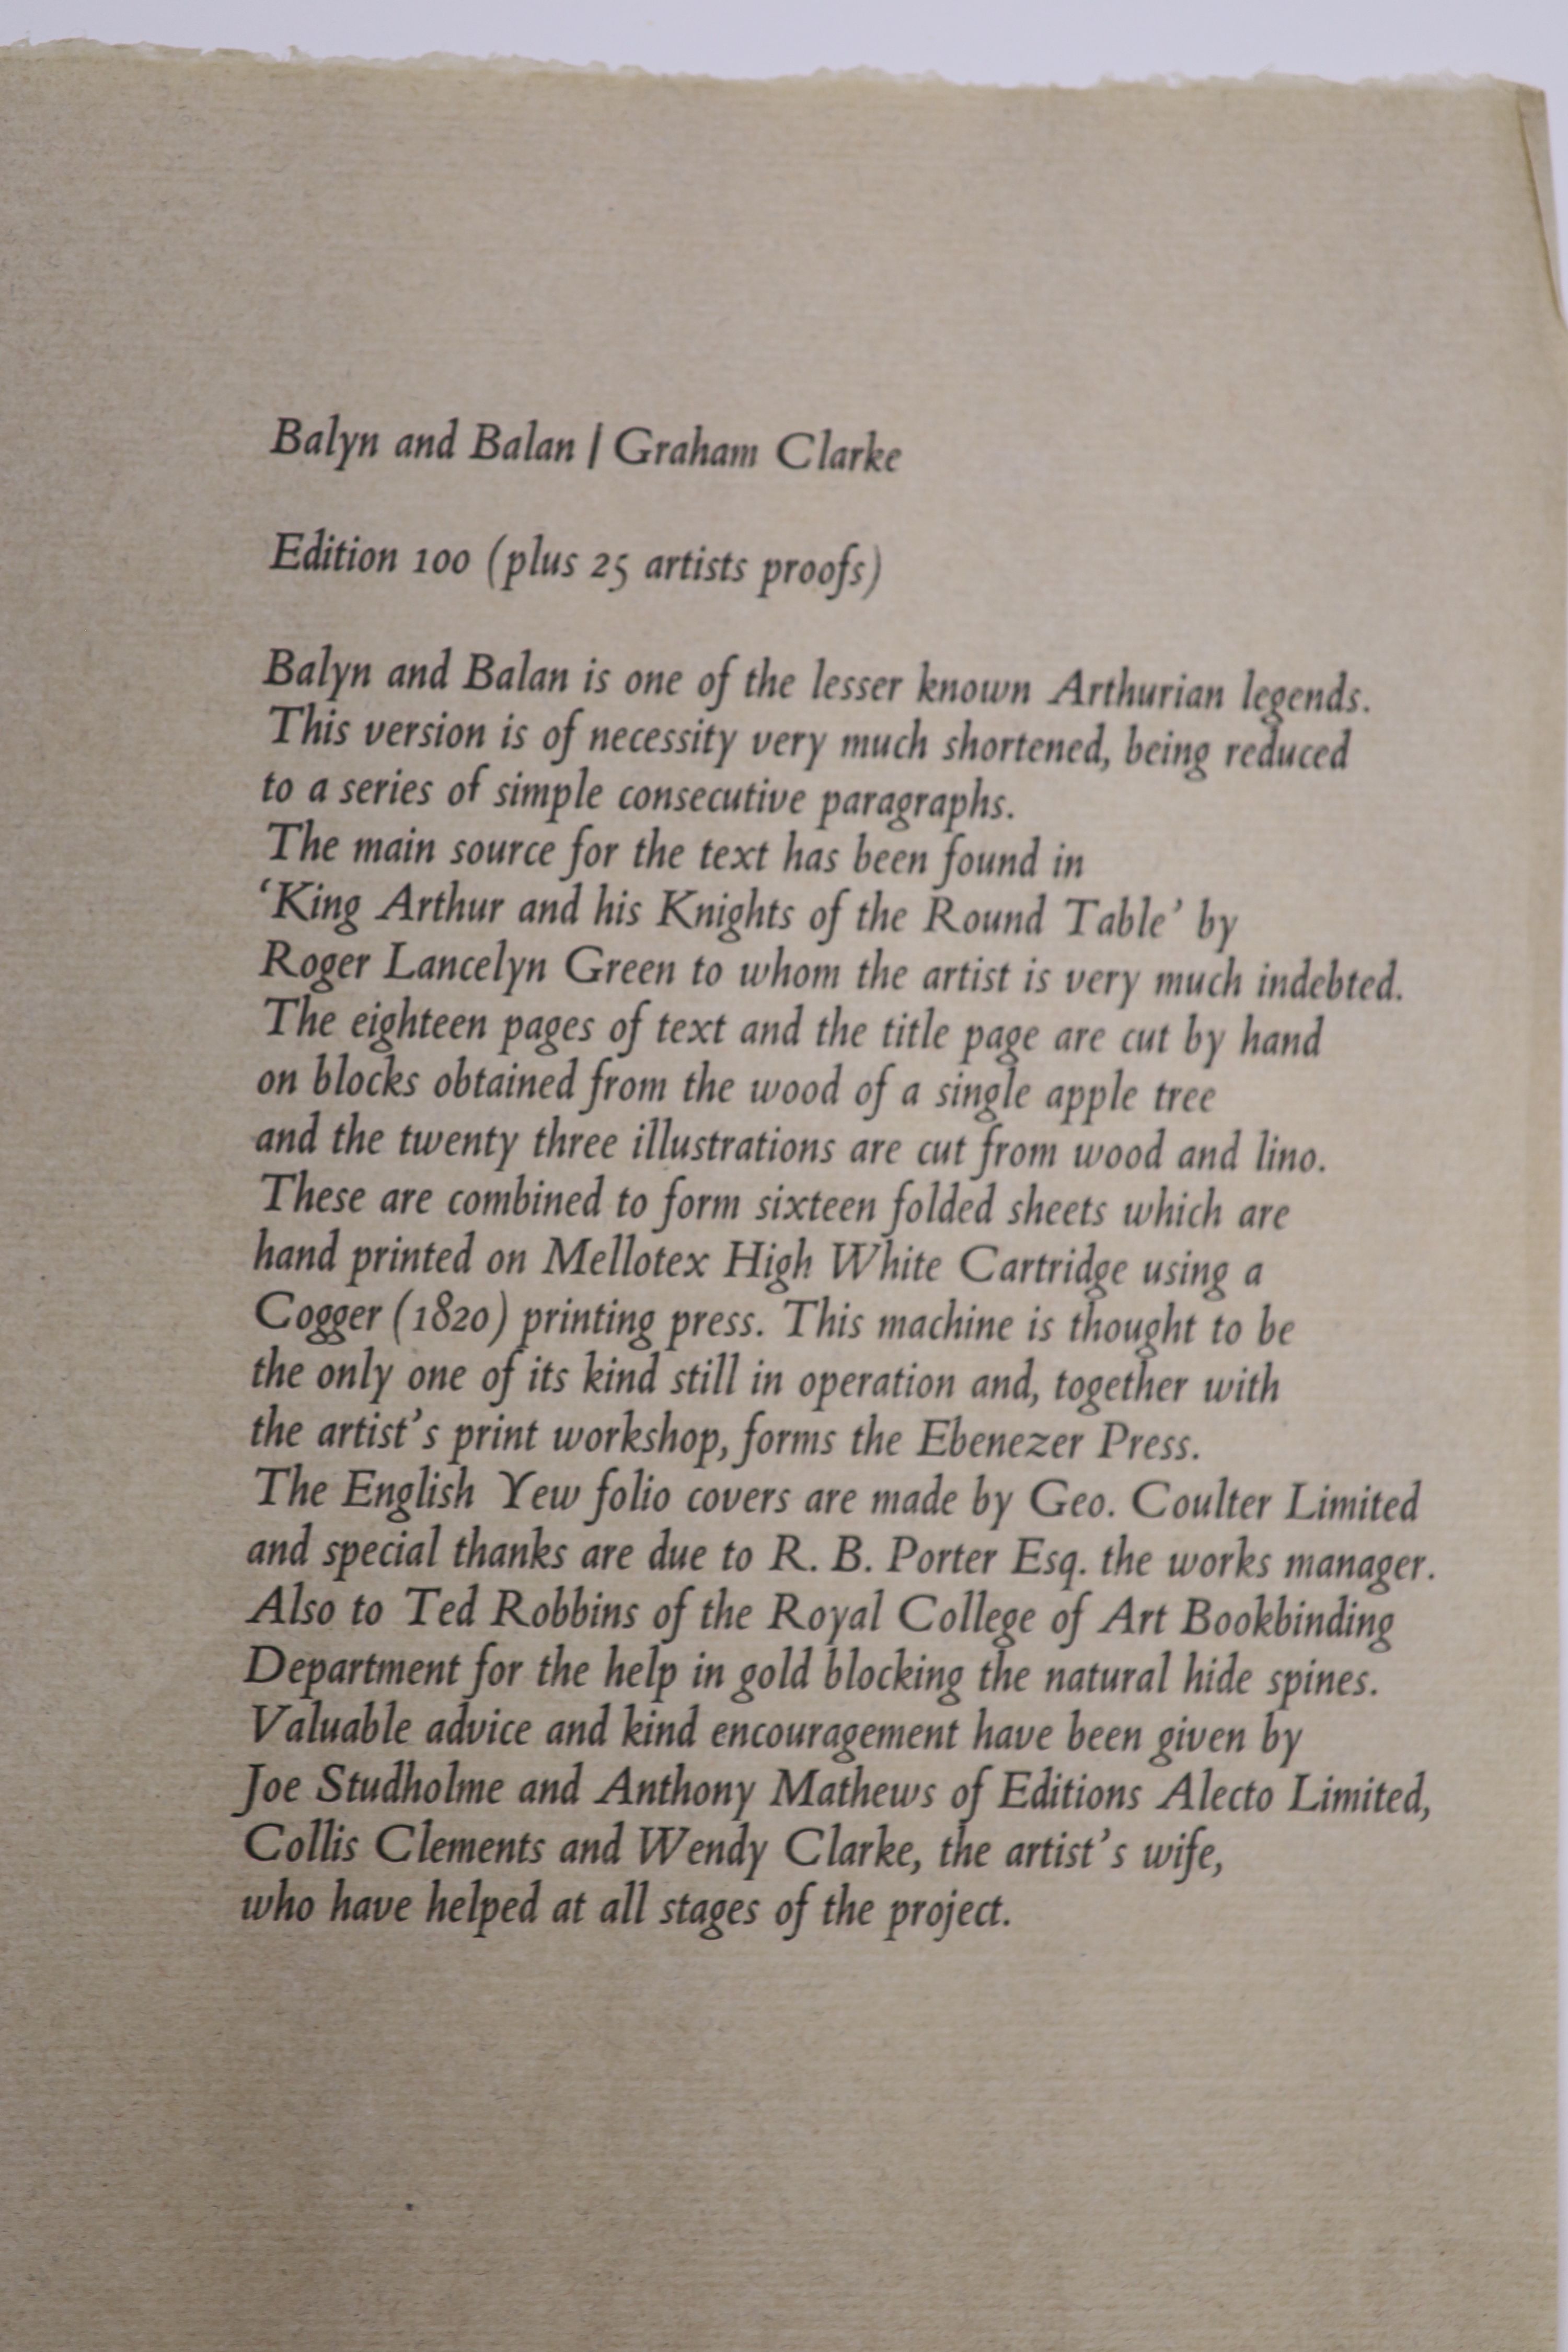 Balyn and Balan | Graham Clarke
Edition 100 (plus 25 artists proofs)
Balyn and Balan is one of the lesser known Arthurian legends.
This version is of necessity very much shortened, being reduced
to a series of simple consecutive paragraphs.
The main source for the text has been found in
‘King Arthur and his Knights of the Round Table’ by
Roger Lancelyn Green to whom the artist is very much indebted.
The eighteen pages of text and the title page are cut by hand
on blocks obtained from the wood of a single apple tree
and the twenty three illustrations are cut from wood and lino.
These are combined to form sixteen folded sheets which are
hand printed on Mellotex High White Cartridge using a
Cogger (1820) printing press. This machine is thought to be
the only one of its kind still in operation and, together with
the artist’s print workshop, forms the Ebenezer Press.
The English Yew folio covers are made by Geo. Coulter Limited
and special thanks are due to R. B. Porter Esq. the works manager.
Also to Ted Robbins of the Royal College of Art Bookbinding
Department for the help in gold blocking the natural hide spines.
Valuable advice and kind encouragement have been given by
Joe Studholme and Anthony Mathews of Editions Alecto Limited,
Collis Clements and Wendy Clarke, the artist’s wife,
who have helped at all stages of the project.